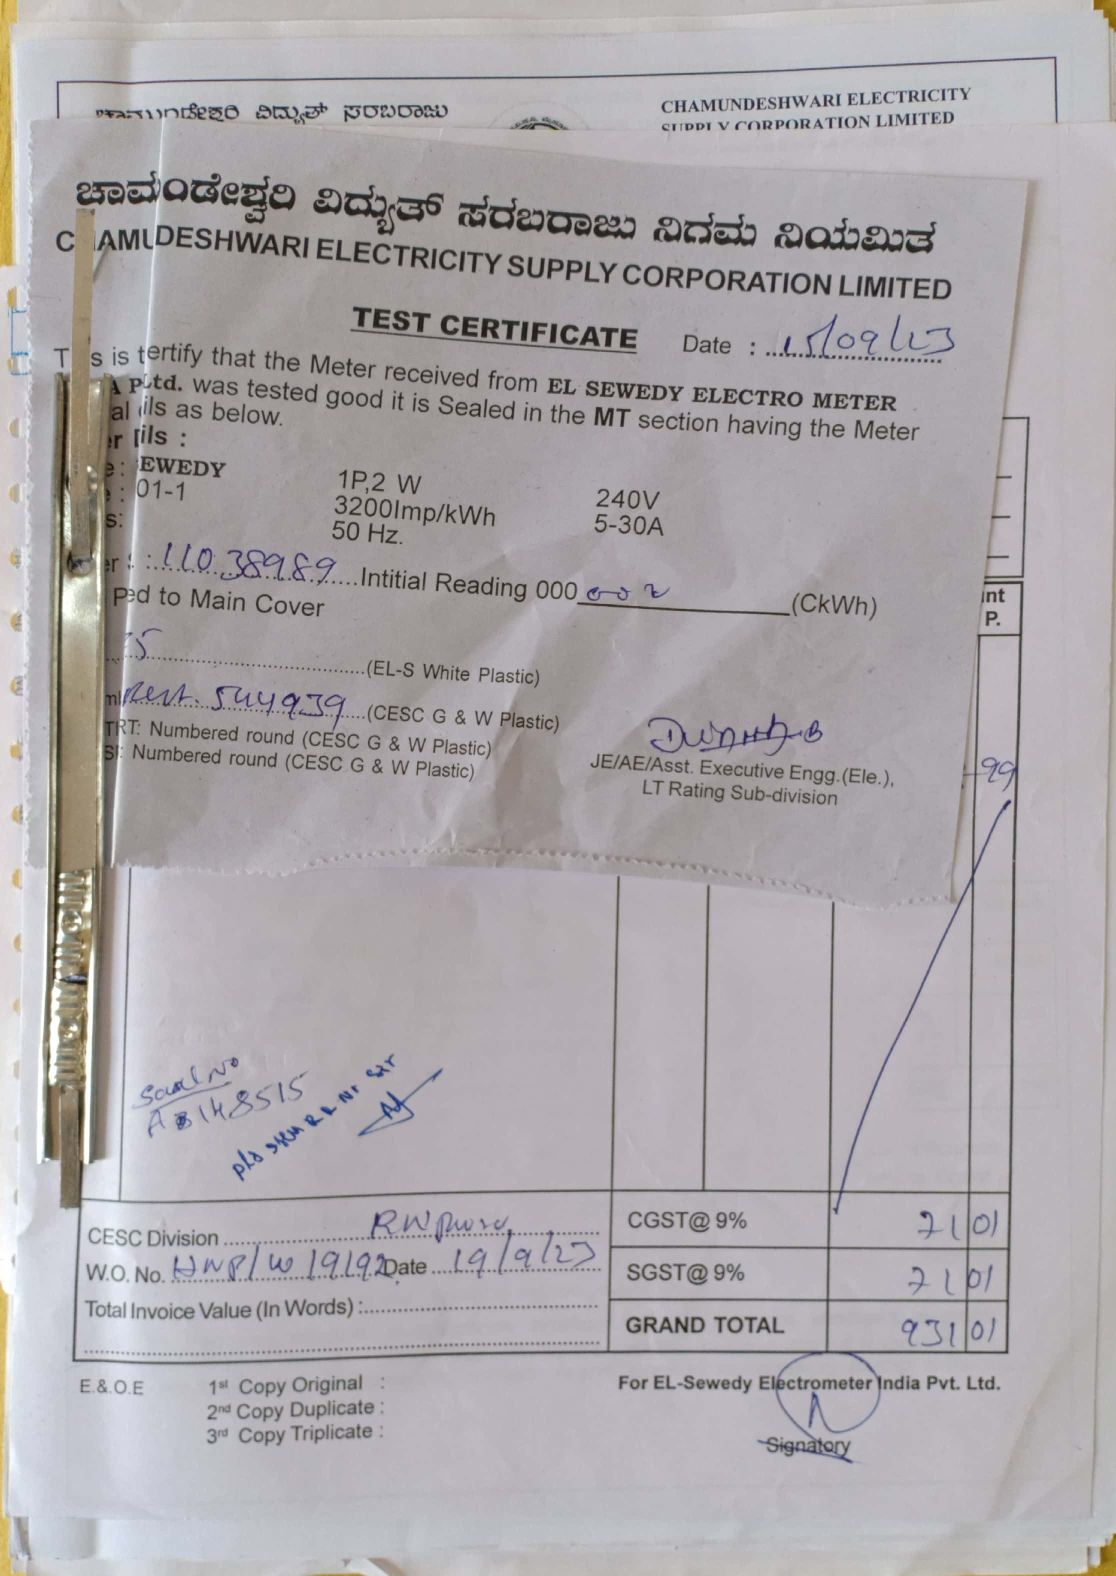 ಚಾಮುಂಡೇಶ್ವರಿ ವಿದ್ಯುತ್ ಸರಬರಾಜು
CHAMUNDESHWARI ELECTRICITY
SUPPLY CORPORATION LIMITED
ಚಾಮುಂಡೇಶ್ವರಿ ವಿದ್ಯುತ್ ಸರಬರಾಜು ನಿಗಮ ನಿಯಮಿತ
CHAMUNDESHWARI ELECTRICITY SUPPLY CORPORATION LIMITED
TEST CERTIFICATE
Date : 15/09/23
is tertify that the Meter received from EL SEWEDY ELECTRO METER
Ptd. was tested good it is Sealed in the MT section having the Meter
ils as below.
ils :
EWEDY 1P,2 W 240V
01-1 3200Imp/kWh 5-30A
50 Hz.
11038989 Intitial Reading 000 002 (CkWh)
ed to Main Cover
(EL-S White Plastic)
544939 (CESC G & W Plastic)
TRT: Numbered round (CESC G & W Plastic)
Numbered round (CESC G & W Plastic)
JE/AE/Asst. Executive Engg.(Ele.),
LT Rating Sub-division
nt
P.
99
AB148515
CESC Division
W.O. No. HNP/W 19192 Date 19/9/23
Total Invoice Value (In Words) :
CGST@ 9% 71 01
SGST@ 9% 71 01
GRAND TOTAL 931 01
E.&.O.E
1st Copy Original :
2nd Copy Duplicate :
3rd Copy Triplicate :
For EL-Sewedy Electrometer India Pvt. Ltd.
Signatory